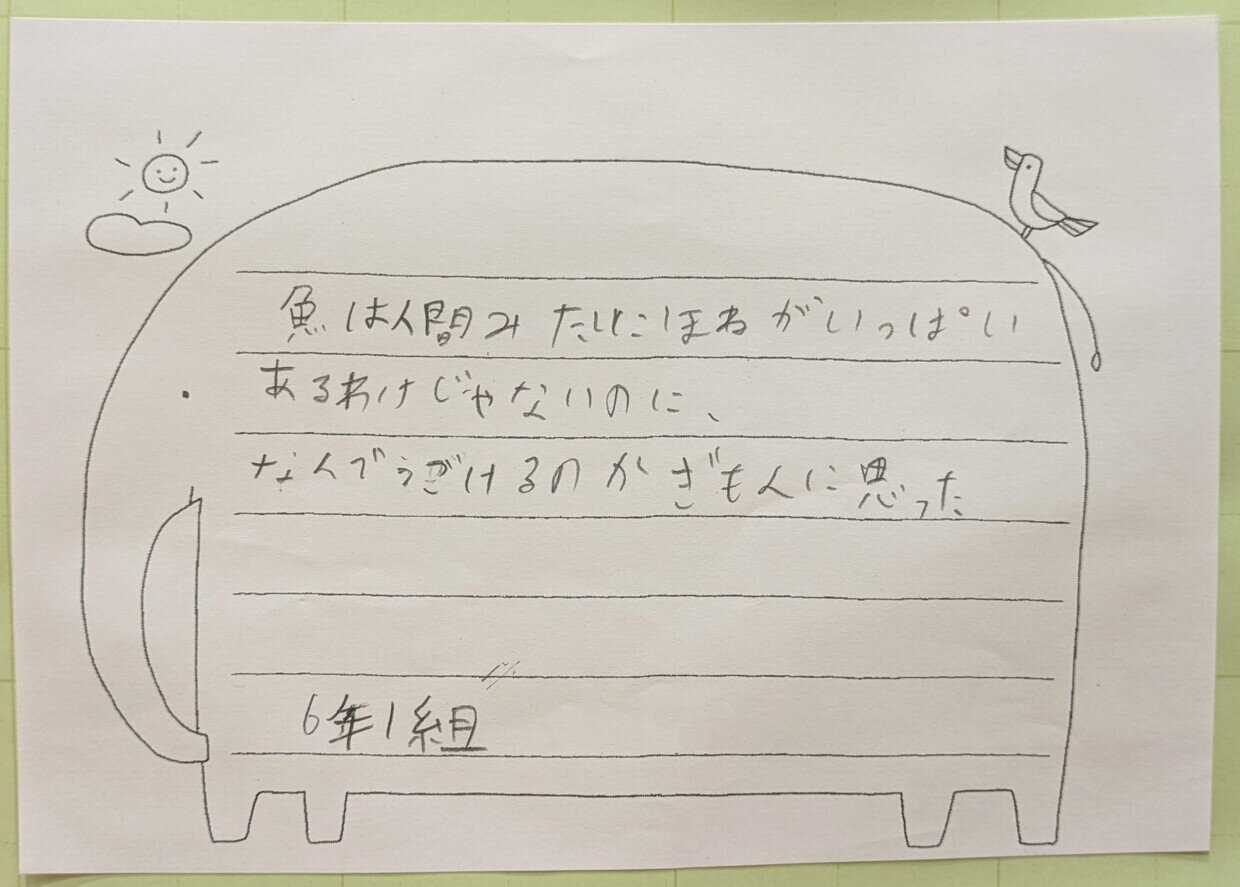 魚は人間みたいにほねがいっぱい
あるわけじゃないのに、
なんでうごけるのかぎもんに思った
6年1組